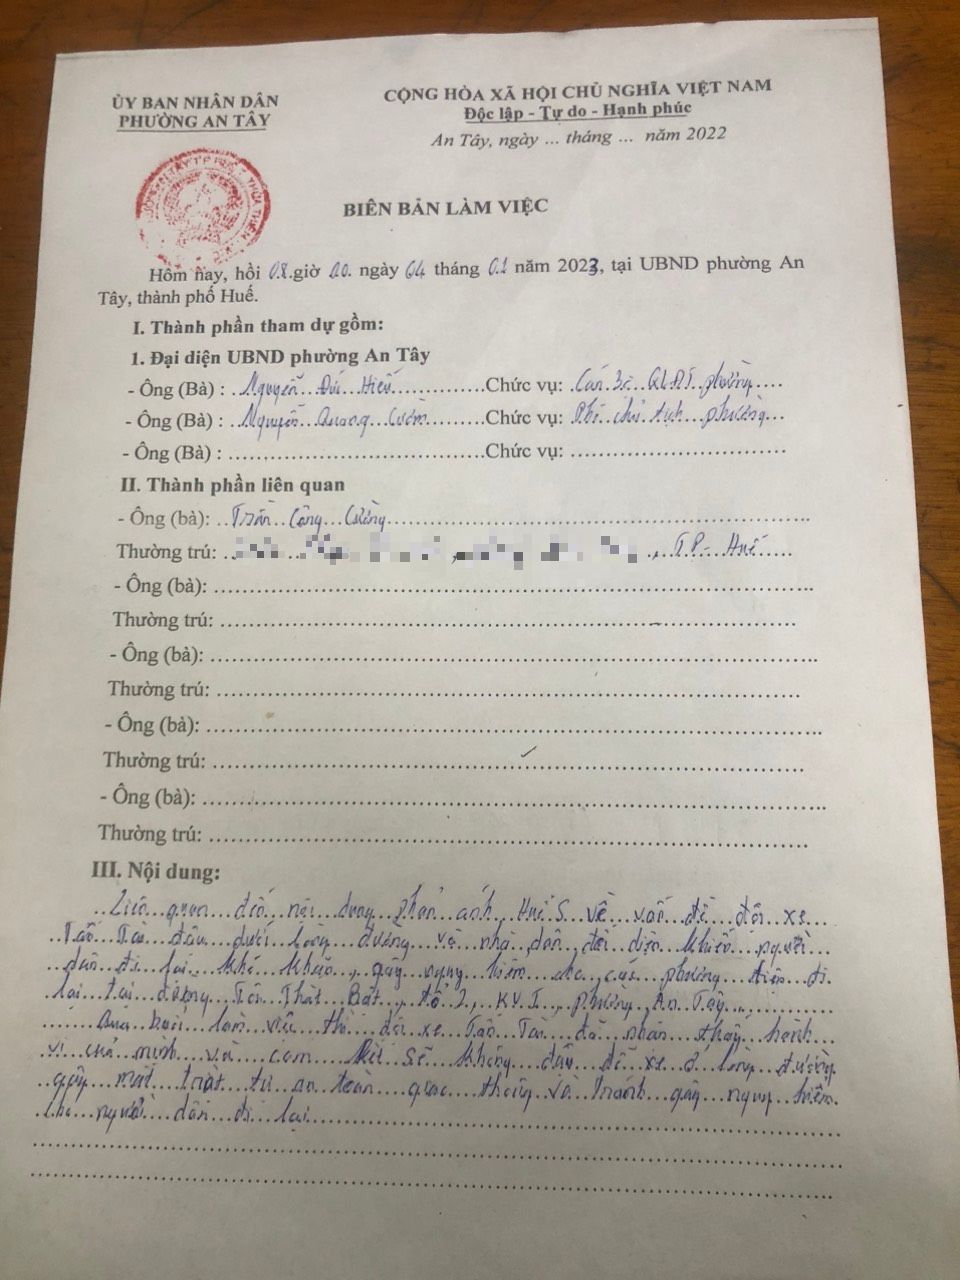 ỦY BAN NHÂN DÂN
PHƯỜNG AN TÂY
CỘNG HÒA XÃ HỘI CHỦ NGHĨA VIỆT NAM
Độc lập - Tự do - Hạnh phúc
An Tây, ngày ... tháng ... năm 2022
BIÊN BẢN LÀM VIỆC
Hôm nay, hồi 08 giờ 00 ngày 04 tháng 01 năm 2023, tại UBND phường An
Tây, thành phố Huế.
I. Thành phần tham dự gồm:
1. Đại diện UBND phường An Tây
- Ông (Bà) : Nguyễn Đức Hiếu Chức vụ: Cán bộ QLĐT phường
- Ông (Bà) : Nguyễn Quang Chức vụ: Phó chủ tịch phường
- Ông (Bà) : Chức vụ:
II. Thành phần liên quan
- Ông (bà): Trần Công Cường
Thường trú: , TP- Huế
- Ông (bà):
Thường trú:
- Ông (bà):
Thường trú:
- Ông (bà):
Thường trú:
- Ông (bà):
Thường trú:
III. Nội dung:
Liên quan đến nội dung phản ánh Huế S về vấn đề đội xe
Tấn Tài đậu dưới lòng đường và nhà dân đối diện khiến người
dân đi lại khó khăn, gây nguy hiểm cho các phương tiện đi
lại tại đường Tôn Thất Bật, tổ 2, KV I, phường An Tây
Qua buổi làm việc thì đội xe Tấn Tài đã nhận thấy hành
vi của mình và cam kết sẽ không đậu đỗ xe ở lòng đường
gây mất trật tự an toàn giao thông và tránh gây nguy hiểm
cho người dân đi lại